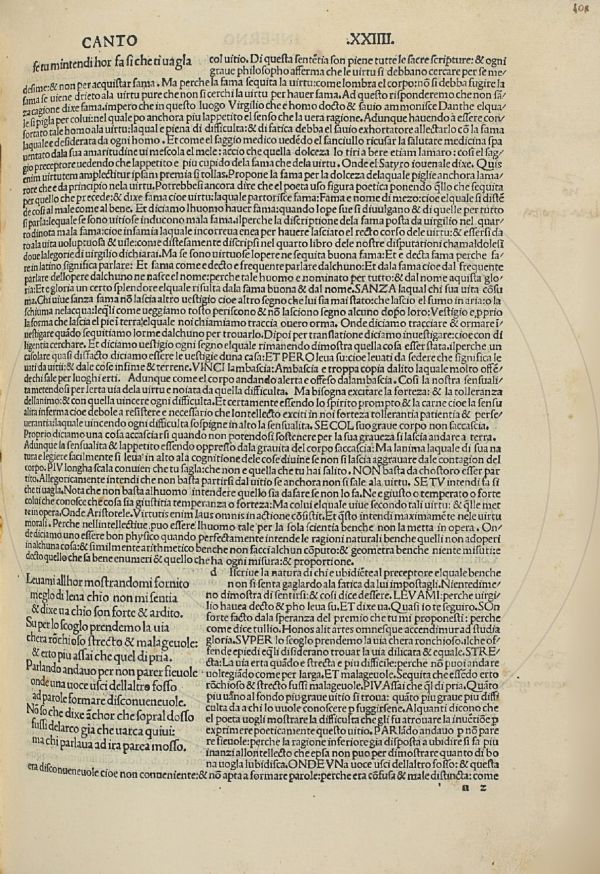 408
CANTO .XXIIII.
se tu mintendi hor fa si che ti uagla
col uitio. Di questa sententia son piene tutte le sacre scripture: & ogni
graue philosopho afferma che le uirtu si debbano cercare per se me/
desime: & non per acquistar fama. Ma perche la fama sequita la uirtu: come lombra el corpo: nō si debba fugire la
fama se uiene drieto ala uirtu pure che non si cerchi la uirtu per hauer fama. Ad questo risponderemo che non sā
za cagione dixe fama. impero che in questo luogo Virgilio che e homo docto & sauio ammonisce Danthe elqua/
le si pigla per colui: nel quale po anchora piu lappetito el senso che la uera ragione. Adunque hauendo à essere con/
fortato tale homo ala uirtu: laqual e piena di difficulta: & di fatica debba el sauio exhortatore allectarlo cō la fama
laquale e desiderata da ogni homo. Et come el saggio medico uedēdo el fanciullo ricusar la salutare medicina spa
uentato dala sua amaritudine ui mescola el mele: accio che quella dolceza lo tiri a bere etiam lamaro: cosi el sag/
gio preceptore uedendo che lappetito e piu cupido dela fama che dela uirtu. Onde el Satyro iouenale dixe. Quis
enim uirtutem amplectitur ipsam premia si tollas. Propone la fama per la dolceza delaquale piglie anchora lama/
rore che e da principio nela uirtu. Potrebbesi ancora dire che el poeta uso figura poetica ponendo q̄llo che sequita
per quello che precede: & dixe fama cioe uirtu: laquale partorisce fama: Fama e nome di mezo: cioe elquale si distē
de cosi al male come al bene. Et diciamo lhuomo hauer fama: quando lope sue si diuulgano & di quelle per tutto
si parla: lequale se sono uitiose inducono mala fama. ilperche la discriptione dela fama posta da uirgilio nel quar
to dinota mala fama: cioe infamia laquale incorreua enea per hauere lasciato el recto corso dele uirtu: & essersi da
to ala uita uoluptuosa & uile: come distesamente discripsi nel quarto libro dele nostre disputationi chamaldolesi
doue lalegorie di uirgilio dichiarai. Ma se sono uirtuose lopere ne sequita buona fama: Et e decta fama perche fa
re in latino significa parlare: Et fama come e decto e frequente parlare dalchuno: Et dala fama cioe dal frequente
parlare dellopere dalchuno ne nasce el nome: perche tale huomo e nominato per tutto: & dal nome aquista glo/
ria: Et e gloria un certo splendore elquale risulta dala fama buona & dal nome. SANZA laqual chi sua uita cōsu
ma. Chi uiue sanza fama nō lascia altro uestigio cioe altro segno che lui sia mai stato: che lascio el fumo in aria: o la
schiuma nelacqua: leqli come ueggiamo tosto periscono & nō lasciono segno alcuno dopo loro: Vestigio e, prio
la forma che lascia el pie ī terra: elquale noi chiamiāmo traccia ouero orma. Onde diciamo tracciare & ormare i/
uestigare quādo sequitiamo lorme dalchuno per trouarlo. Dipoi per translatione diciamo inuestigare: cioe con di
ligentia cerchare. Et diciamo uestigio ogni segno elquale rimanendo dimostra quella cosa esser stata. ilperche un
casolare quasi disfacto diciamo essere le uestigie duna casa: ET PERO leua su: cioe leuati da sedere che significa le
uati da uitii: & dale cose infime & terrene. VINCI lambascia: Ambascia e troppa copia dalito laquale molto offē
de chi sale per luoghi erti. Adunque come el corpo andando alerta e offeso dalambascia. Cosi la nostra sensuali/
ta metendosi per lerta uia dela uirtu e noiata da quella difficulta. Ma bisogna excitare la forteza: & la tolleranza
dellanimo: & con quella uincere ogni difficulta. Et certamente essendo lo spirito prompto & la carne cioe la sensu
alita inferma cioe debole a resistere e necessario che lontellecto exciti in noi forteza tollerantia patientia & perse/
uerantia: laquale uincendo ogni difficulta sospigne in alto la sensualita. SE COL suo graue corpo non saccascia.
Proprio diciamo una cosa accasciarsi quando non potendosi sostenere per la sua graueza si lascia andare a terra.
Adunque la sensualita & lappetito essendo oppresso dala grauita del corpo saccascia: Ma lanima laquale di sua na
tura e legiere facilmente si leua in alto ala cognitione dele cose diuine se non si lascia aggrauare dale contagion del
corpo. PIV longha scala conuien che tu sagla: che non e quella che tu hai salito. NON basta da chostoro esser par
tito. Allegoricamente intendi che non basta partirsi dal uitio se anchora non si sale ala uirtu. SE TV intendi fa si
che ti uagla. Nota che non basta alhuomo intendere quello sia da fare se non lo fa. Ne e giusto o temperato o forte
colui che conosce che cosa sia giustitia temperanza o forteza: Ma colui elquale uiue secondo tali uirtu: & q̄lle met
te in opera. Onde Aristotele. Virtutis enim laus omnis in actione cōsistit. Et q̄sto intendi maximamēte nele uirtu
morali. Perche nell intellectiue, puo essere lhuomo tale per la sola scientia benche non la metta in opera. On/
de diciamo uno essere bon physico quando perfectamente intende le ragioni naturali benche quelli non adoperi
in alchuna cosa: & similmente arithmetico benche non facci alchun cōputo: & geometra benche niente misuri: e
decto quello che sa bene enumeri & quello che ha ogni misura: & proportione.
Leuami allhor mostrandomi fornito
meglo di lena chio non mi sentia
& dixe ua chio son forte & ardito.
Su per lo scoglo prendemo la uia
chera rōchioso strecto & malageuole:
& erto piu assai che quel di pria.
Parlando andauo per non parer fieuole
onde una uoce usci dellaltro fosso
ad parole formare disconueneuole.
Nō so che dixe āchor che sopral dosso
fussi del arco gia che uarca quiui:
ma chi parlaua ad ira parea mosso.
d Iscriue la natura di chi e ubidiēte al preceptore elquale benche
non si senta gagliardo ala fatica da lui impostagli. Nientedime/
no dimostra di sentirsi: & cosi dice dessere. LEVAMI: perche uir/
gilio hauea decto & pho leua su. ET dixe ua. Quasi io te seguiro. SOn
forte facto dala speranza del premio che tu mi proponesti: perche
come dice tullio. Honos alit artes omnesque accendimur ad studia
gloria. SVPER lo scoglo prendemo la uia chera ronchioso. ilche of/
fende epiedi eqli disiderano trouar la uia dilicata & equale. STRE/
CTA: La uia erta quādo e strecta e piu difficile: perche nō puoi andare
uoltegiādo come per larga. ET malageuole. Sequita che essēdo erto
rōchioso & strecto fussi malageuole. PIV Assai che q̄l di pria. Quāto
piu uāno al fondo piu graue uitio si troua: quāto piu graue piu diffi
culta da a chi lo uuole conoscere p fuggirsene. Alquanti dicono che
el poeta uogli mostrare la difficulta che gli fu atrouare la inuētiōe p
exprimere poeticamente questo uitio. PARLādo andauo p nō pare
re fieuole: perche la ragione inferiore gia disposta a ubidire si fa piu
inanzi allontellecto che epsa non puo per dimostrare quanto di bo
na uogla lubidisca. ONDE VNa uoce usci dellaltro fosso: & questa
era disconueneuole cioe non conueniente: & nō apta a formare parole: perche era cōfusa & male distincta: come
n 2